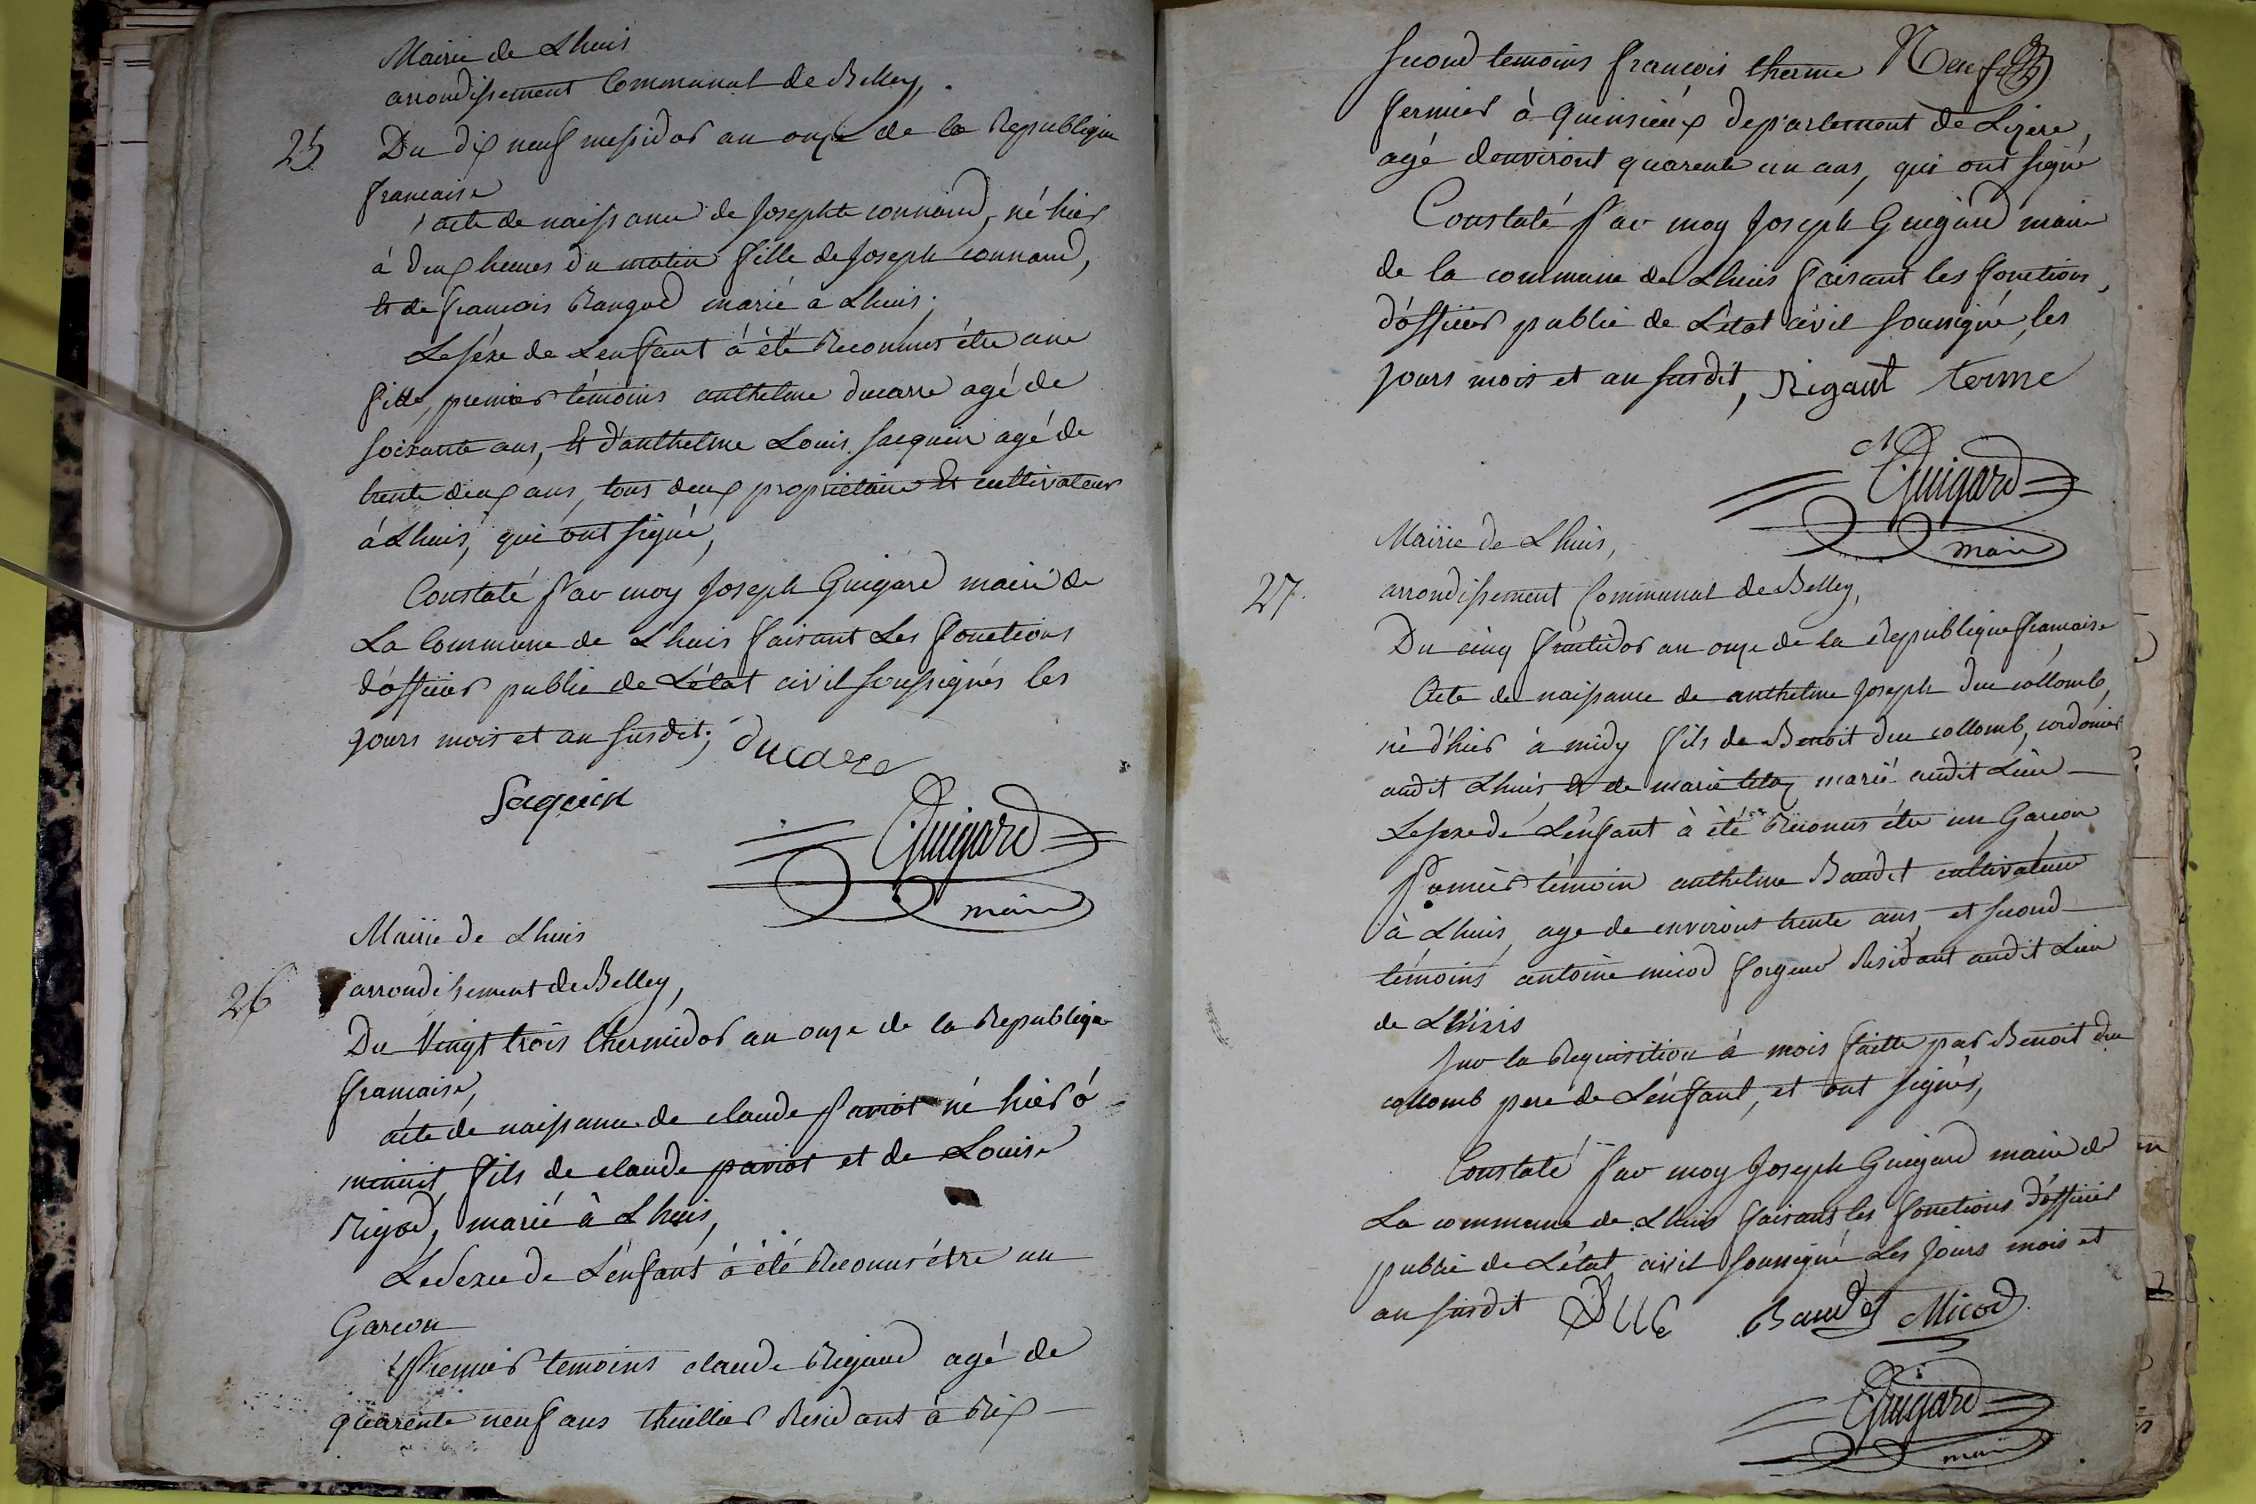 Mairie de Lhuis
arrondissement Communal de Belley,
25 Du dix neuf messidor an onze de la Republique
francaise
acte de naissance de Josephte connand, né hier
à deux heures du matin fille de Joseph connand,
et de francois marié a Lhuis.
Le sexe de Lenfant à été Reconnus être une
fille, premier témoins anthelme ducarre agé de
soixante ans, Et d'anthelme Louis Saequin agé de
trente deux ans, tous deux propriétaire Et cultivateur
à Lhuis, qui ont signé,
Constaté Par moy Joseph Guigard maire de
La Commune de Lhuis faisant Les fonctions
d'officier public de L'état civil soussignés les
jours mois et an susdit; ducare
Saquin
Guigard
maire
Mairie de Lhuis
26 arrondissement de Belley,
Du Vingt trois thermidor an onze de la Republique
francaise,
acte de naissance de claude parriot né hier à
minuit fils de claude parriot et de Louise
Rigod, marié à Lhuis,
Le Sexe de L'enfant à été Reconnus être un
Garcon
Premier temoins claude Rigaud agé de
quarente neuf ans thuillier Residant à Rix
second temoins francois therme Neuf
fermier à quinsieux departement de Lizere,
agé denviront quarente un ans, qui ont signé
Constaté Par moy Joseph Guigard maire
de la commune de Lhuis faisant les fonctions,
d'officier public de L'état civil soussigné, les
jours mois et an susdit, Rigaut terme
Guigard
maire
Mairie de Lhuis,
27. arrondissement Communal de Belley,
Du cinq fructidor an onze de la Republique francaise
Acte de naissance de anthelme Joseph du collomb,
né d'hier à midy fils de Benoit du collomb, cordonier
audit Lhuis Et de marie mariê audit Lieu
Le sexe de L'enfant à été Reconus être un Garcon
Premier témoin anthelme Baudet cultivateur
à Lhuis, age de environt trente ans, et second
témoins antoine micod forgeur Residant audit Lieu
de Lhuis
Sur la Requisition à mois faitte par Benoit du
collomb pere de L'énfant, et ont signés,
Constaté Par moy Joseph Guigard maire de
La commune de Lhuis faisant les fonctions d'officier
public de L'état civil soussigné Les Jours mois et
an susdit Baudet Micod
Guigard
maire